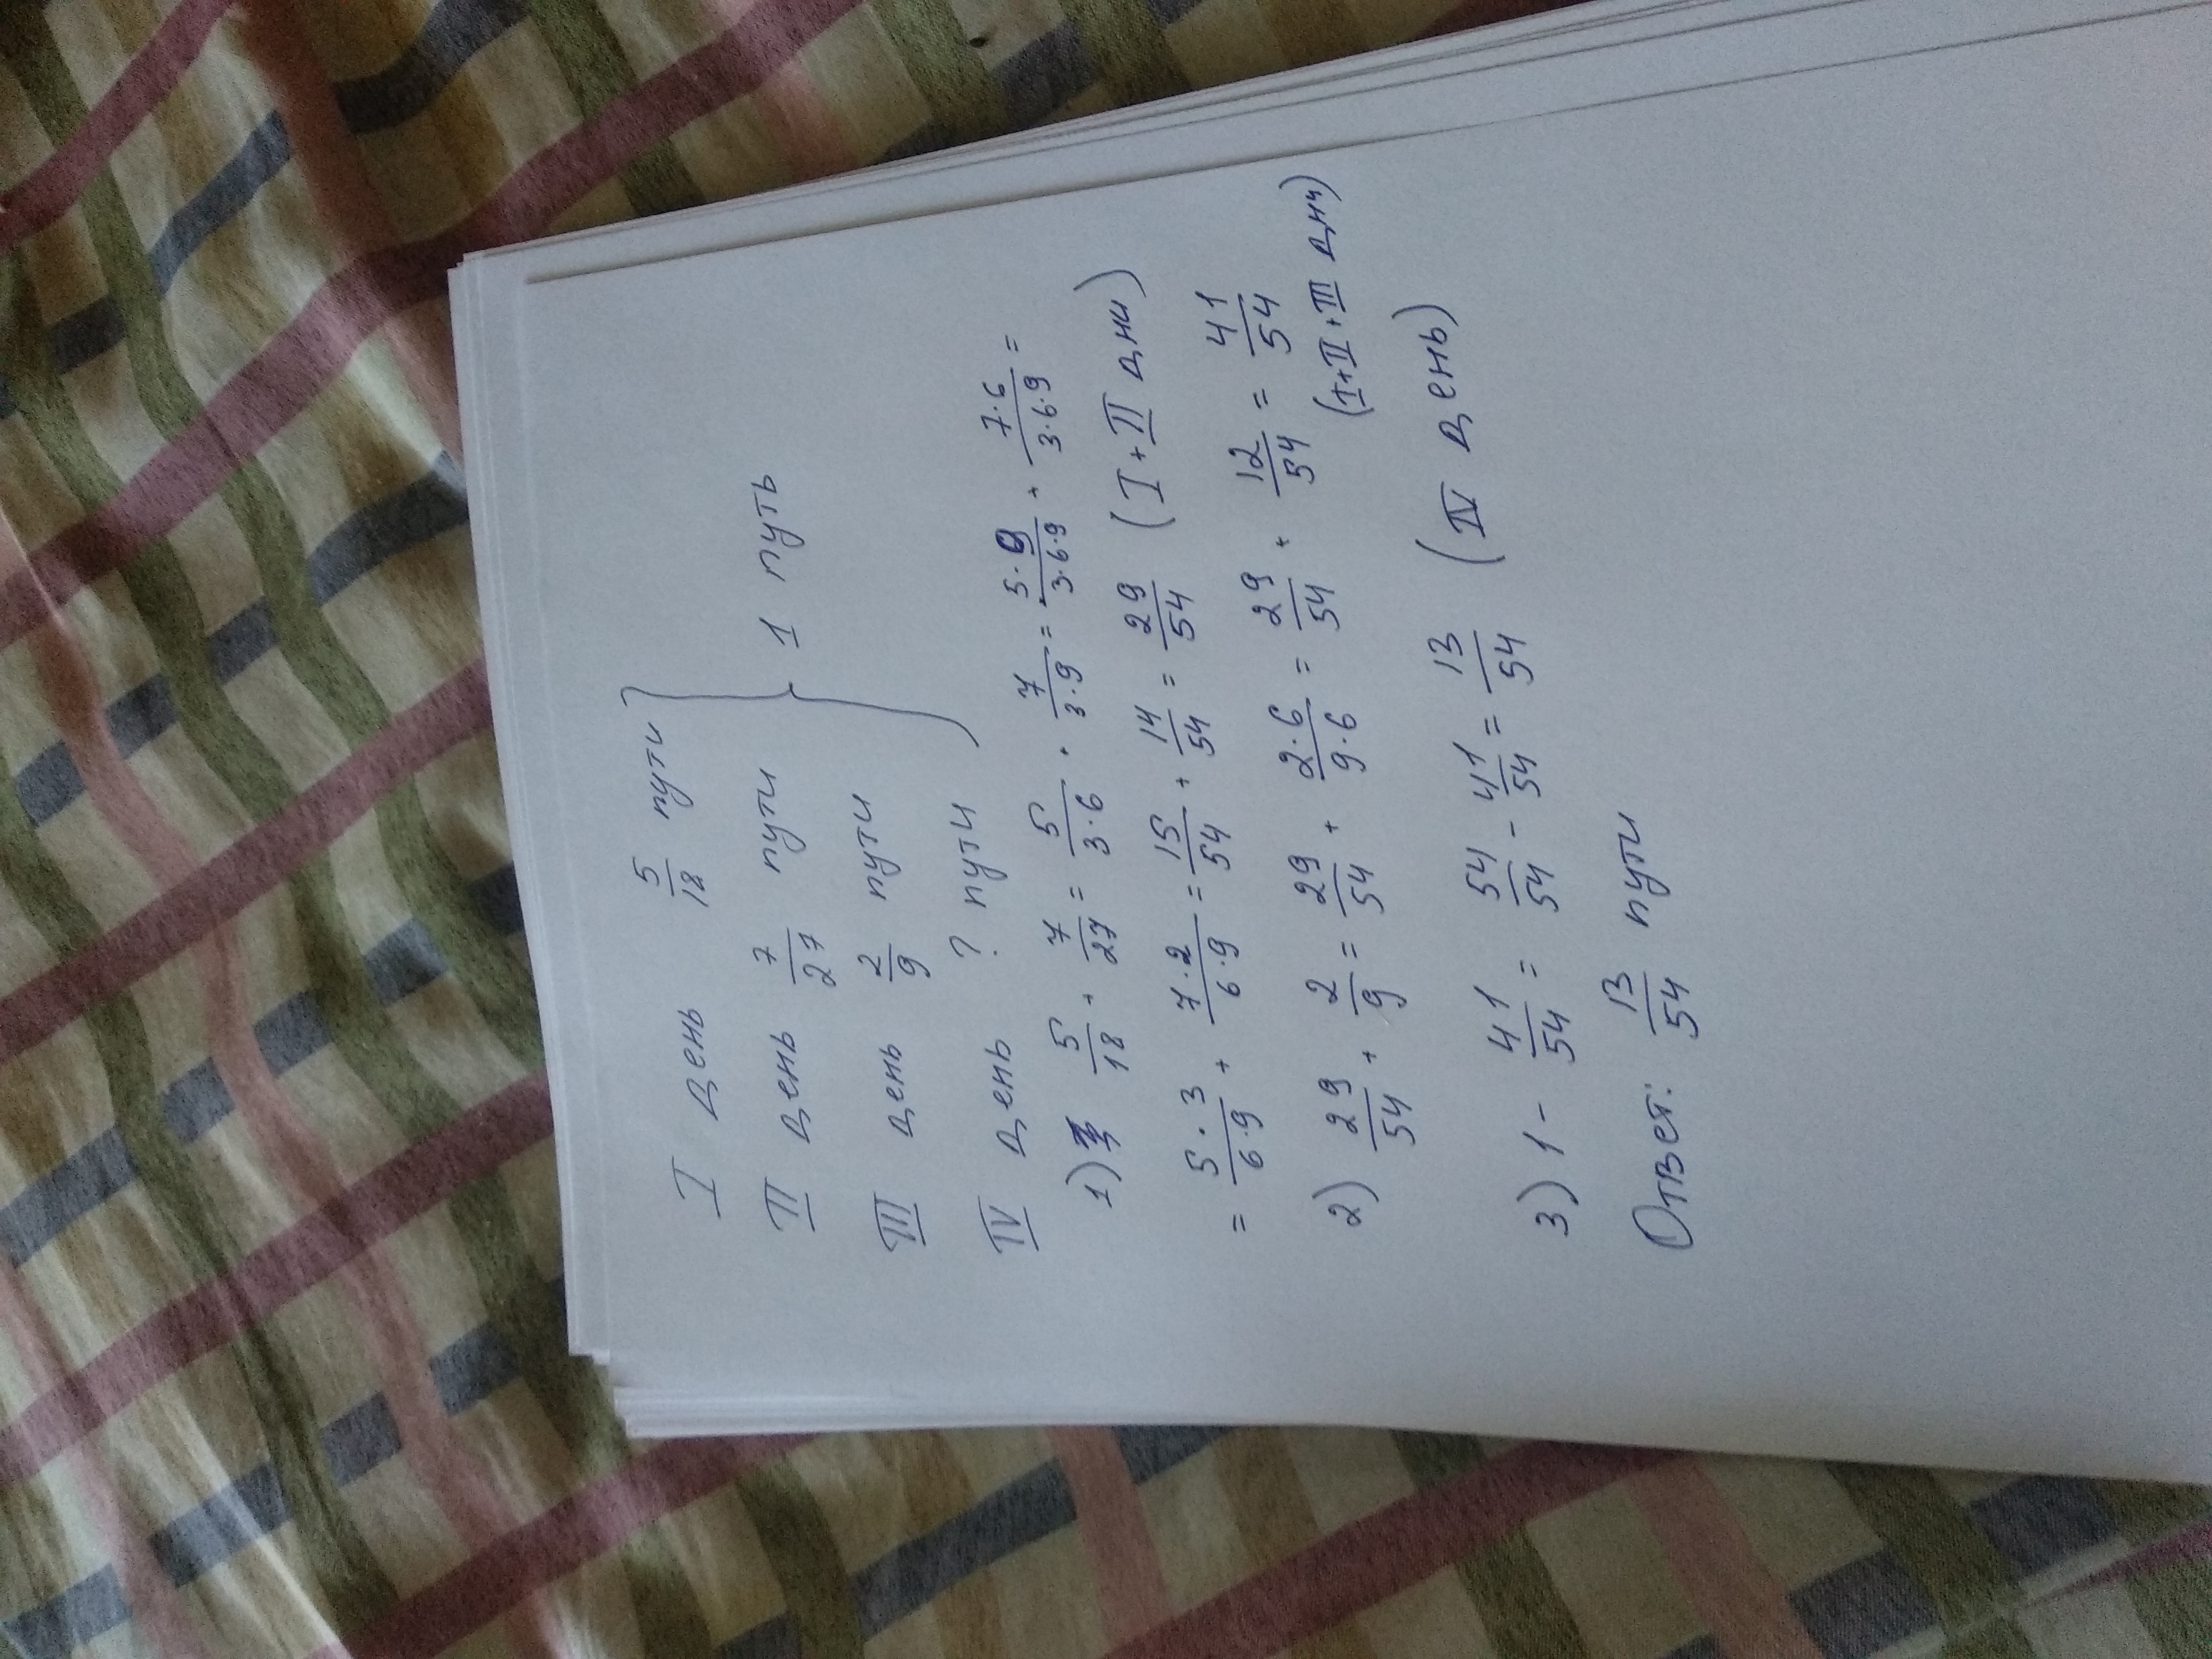 I день 5/18 пути
II день 7/27 пути } 1 путь
III день 2/9 пути
IV день ? пути
1) 5/18 + 7/27 = 5/3·6 + 7/3·9 = 5·9/3·6·9 + 7·6/3·6·9 =
= 5·3/6·9 + 7·2/6·9 = 15/54 + 14/54 = 29/54 (I+II дни)
2) 29/54 + 2/9 = 29/54 + 2·6/9·6 = 29/54 + 12/54 = 41/54
(I+II+III дни)
3) 1 - 41/54 = 54/54 - 41/54 = 13/54 (IV день)
Ответ: 13/54 пути